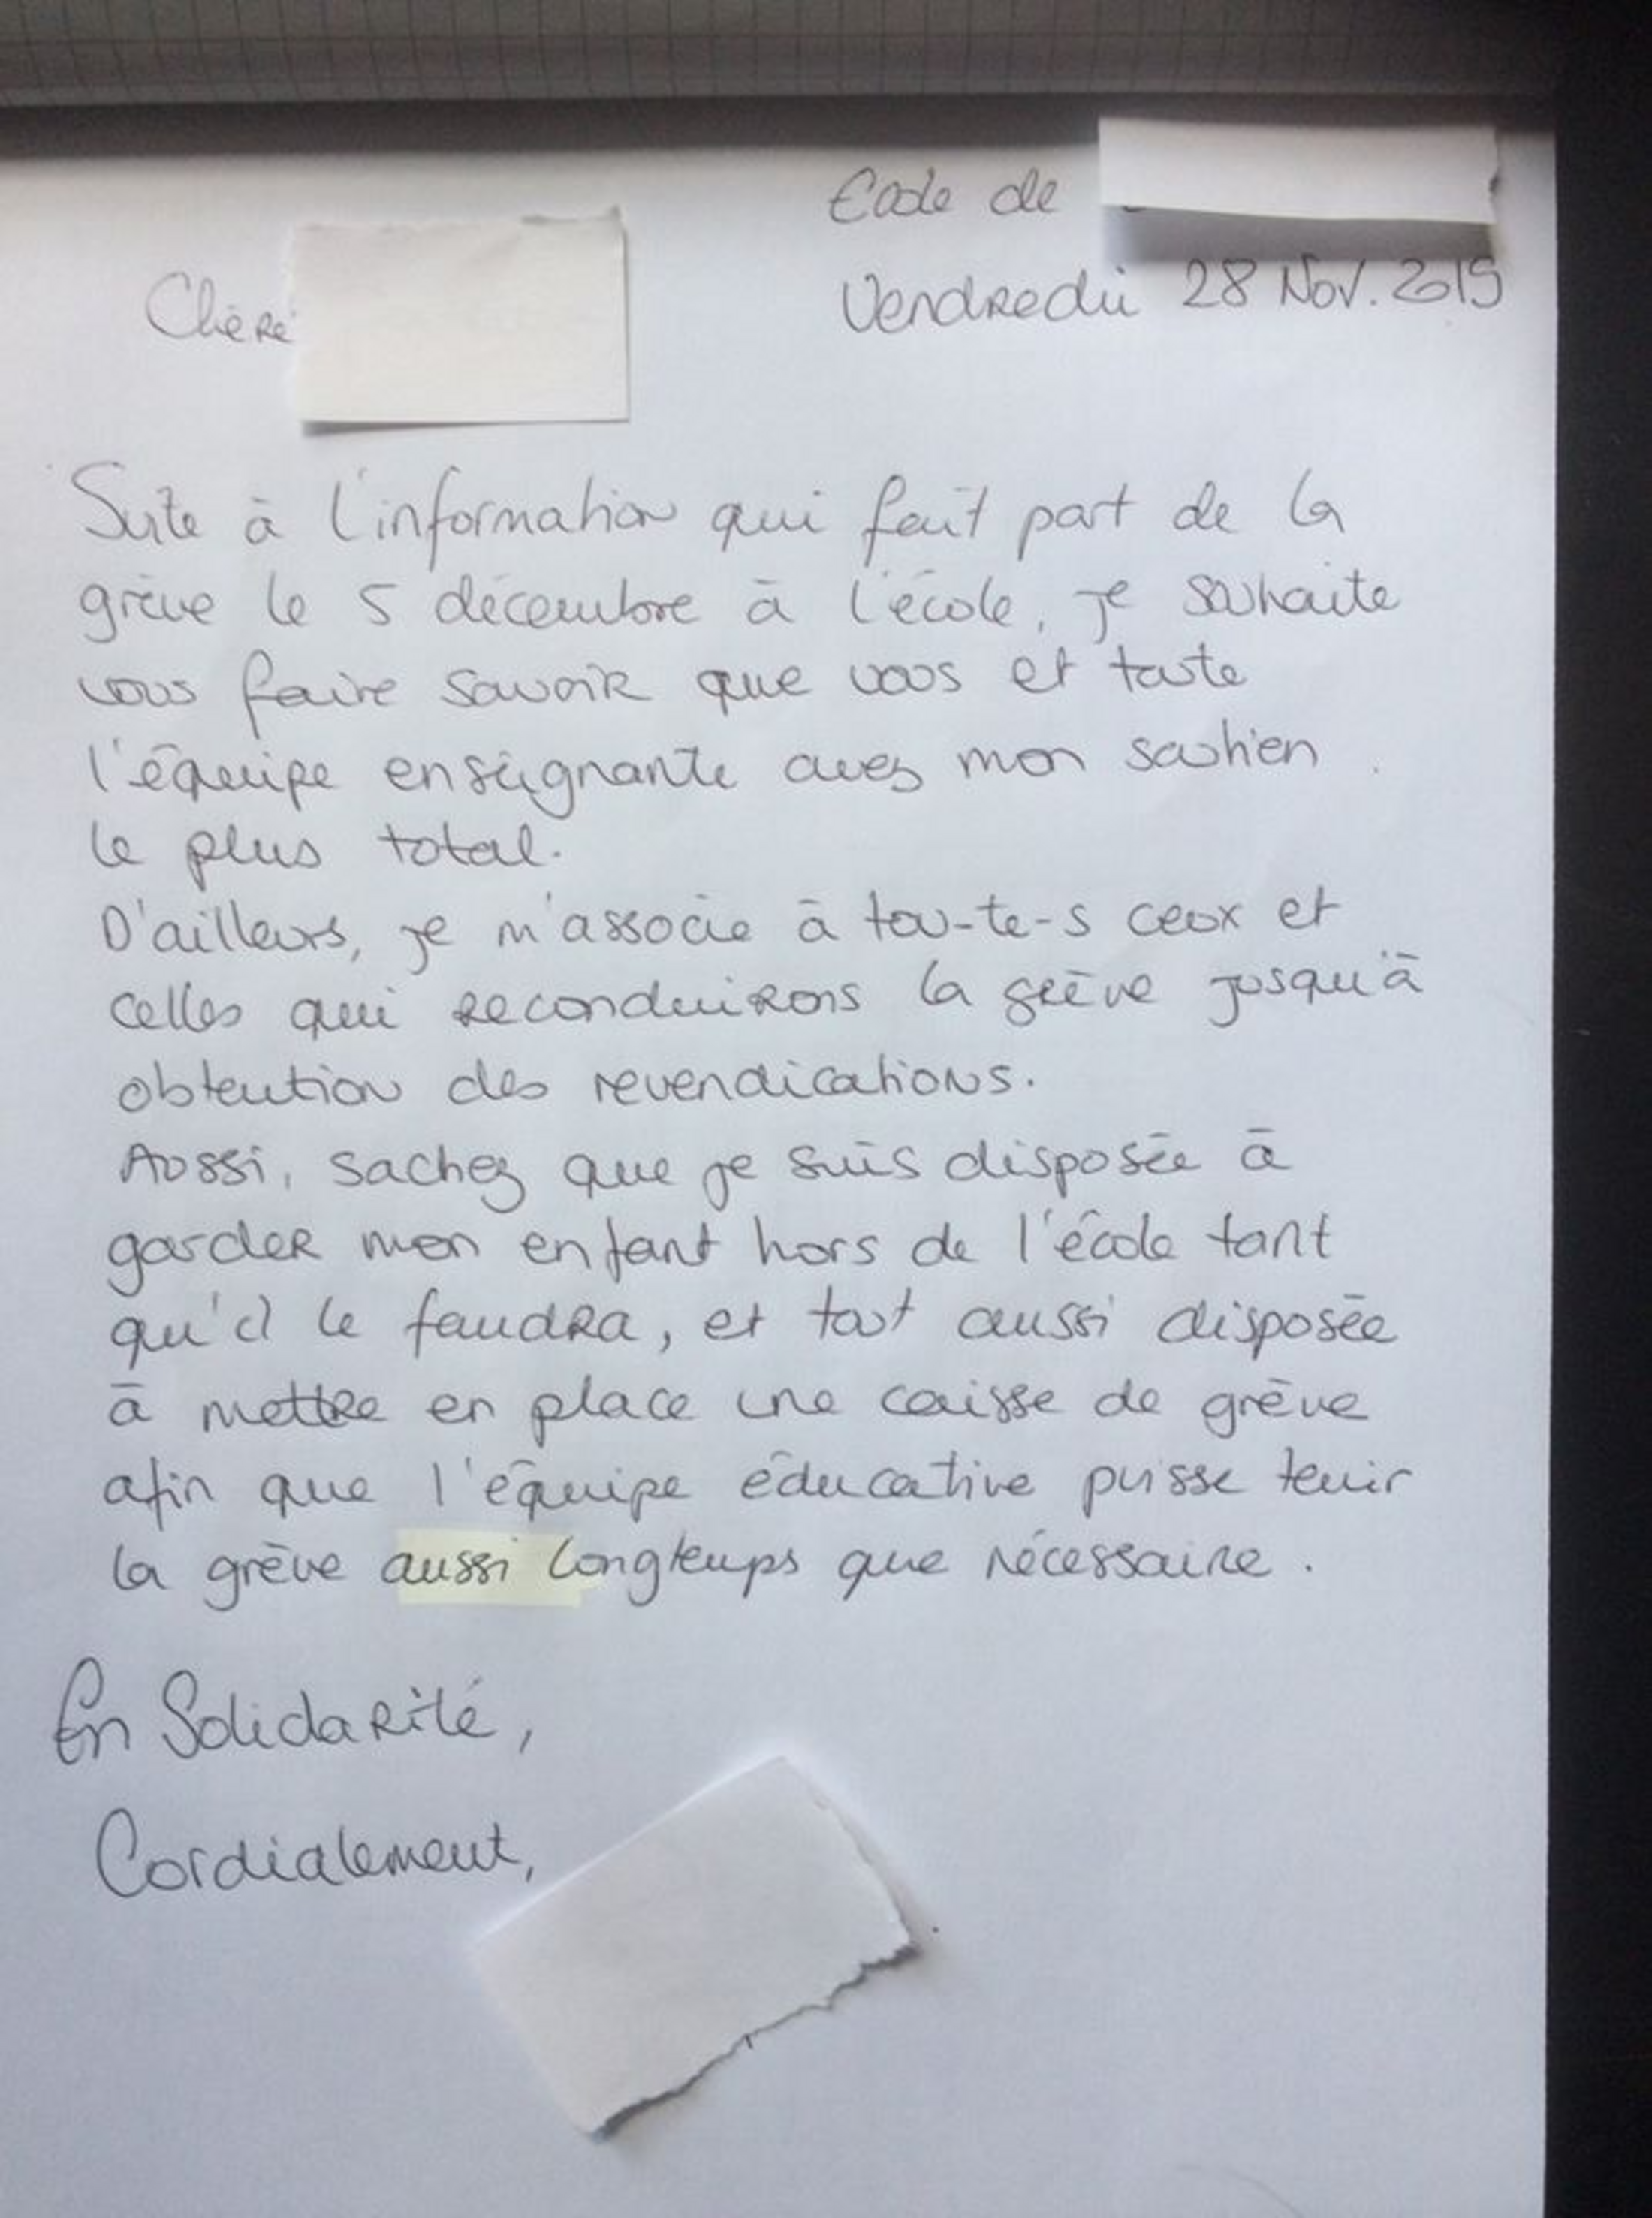 Ecole de
Vendredi 28 Nov. 2019
Chère
Suite à l'information qui fait part de la
grève le 5 décembre à l'école, je souhaite
vous faire savoir que vous et toute
l'équipe enseignante avez mon soutien
le plus total.
D'ailleurs, je m'associe à tou-te-s ceux et
celles qui reconduirons la grève jusqu'à
obtention des revendications.
Aussi, sachez que je suis disposée à
garder mon enfant hors de l'école tant
qu'il le faudra, et tout aussi disposée
à mettre en place une caisse de grève
afin que l'équipe éducative puisse tenir
la grève aussi longtemps que nécessaire.
En Solidarité,
Cordialement,